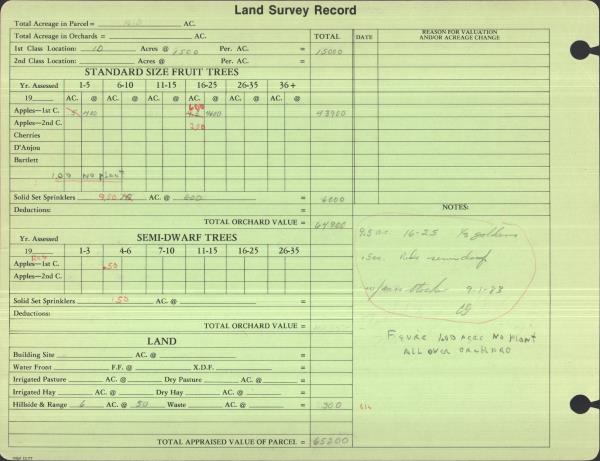 Land Survey Record
Total Acreage in Parcel = AC.
Total Acreage in Orchards = AC. TOTAL DATE REASON FOR VALUATION AND/OR ACREAGE CHANGE
1st Class Location: 10 Acres @ 1500 Per. AC. = 15000
2nd Class Location: Acres @ Per. AC. =
STANDARD SIZE FRUIT TREES
Yr. Assessed 1-5 6-10 11-15 16-25 26-35 36+
19 AC. @ AC. @ AC. @ AC. @ AC. @ AC. @
Apples—1st C. 43900
Apples—2nd C.
Cherries
D'Anjou
Bartlett
1.00 No plant
Solid Set Sprinklers 9.50 AC. @ 600 = 6000
Deductions: NOTES:
TOTAL ORCHARD VALUE = 64900
SEMI-DWARF TREES
Yr. Assessed 1-3 4-6 7-10 11-15 16-25 26-35
19 AC. @ AC. @ AC. @ AC. @ AC. @ AC. @
Apples—1st C. .50
Apples—2nd C.
Solid Set Sprinklers .50 AC. @ =
Deductions:
TOTAL ORCHARD VALUE =
9.5 ac. 16-25 goldens
.5ac. semidwarf
9-1-83
Figure 1.00 acres no plant
all over orchard
LAND
Building Site AC. @ =
Water Front F.F. @ X.D.F. =
Irrigated Pasture AC. @ Dry Pasture AC. @ =
Irrigated Hay AC. @ Dry Hay AC. @ =
Hillside & Range 6 AC. @ 50 Waste AC. @ = 300
TOTAL APPRAISED VALUE OF PARCEL = 65200